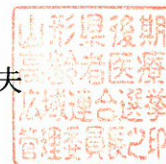 夫
山形県後期
高齢者医療
広域連合選挙
管理委員長之印